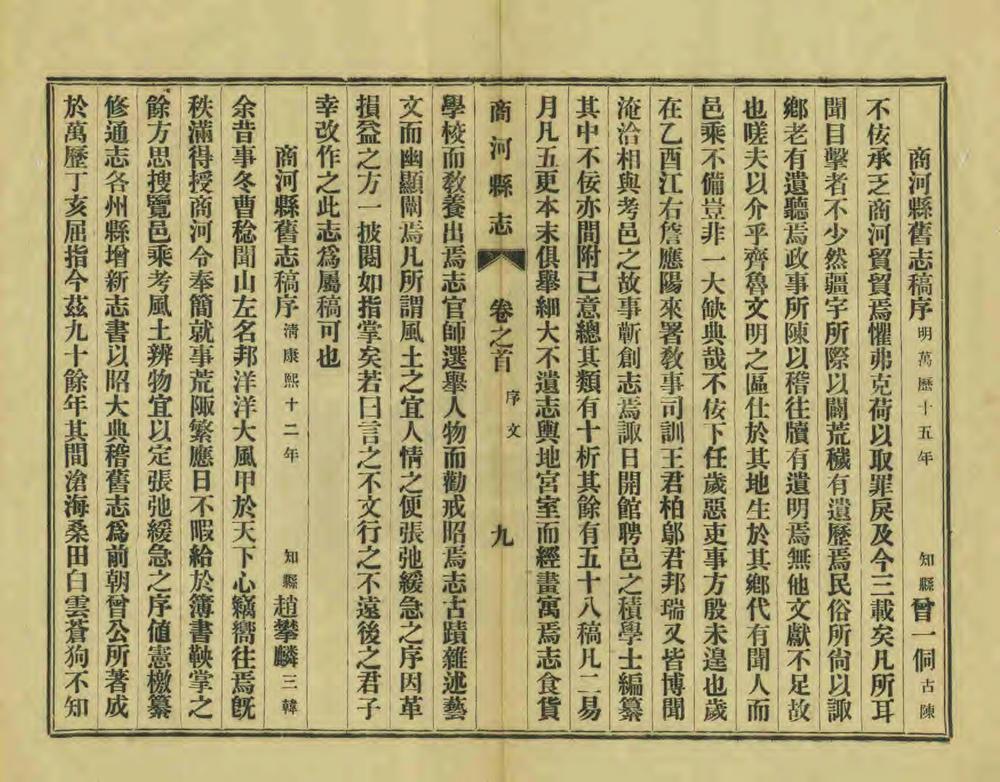 商河縣舊志稿序 明萬歷十五年 知縣曾一侗古陳
不佞承乏商河貿貿焉懼弗克荷以取罪戾及今三載矣凡所耳
聞目擊者不少然疆宇所際以闢荒穢有遺歷焉民俗所尚以諏
鄉老有遺聽焉政事所陳以稽往牘有遺明焉無他文獻不足故
也嗟夫以介乎齊魯文明之區仕於其地生於其鄉代有聞人而
邑乘不備豈非一大缺典哉不佞下任歲惡吏事方殷未遑也歲
在乙酉江右詹應陽來署敎事司訓王君柏鄔君邦瑞又皆博聞
淹洽相與考邑之故事蔪創志焉諏日開館聘邑之積學士編纂
其中不佞亦間附己意總其類有十析其餘有五十八稿凡二易
月凡五更本末俱舉細大不遺志輿地宮室而經畫寓焉志食貨
商河縣志 卷之首 序文 九
學校而敎養出焉志官師選舉人物而勸戒昭焉志古蹟雜述藝
文而幽顯闡焉凡所謂風土之宜人情之便張弛緩急之序因革
損益之方一披閱如指掌矣若曰言之不文行之不遠後之君子
幸改作之此志爲屬稿可也
商河縣舊志稿序 淸康熙十二年 知縣趙攀麟三韓
余昔事冬曹稔聞山左名邦洋洋大風甲於天下心竊嚮往焉旣
秩滿得授商河令奉簡就事荒陬繁應日不暇給於簿書鞅掌之
餘方思搜覽邑乘考風土辨物宜以定張弛緩急之序値憲檄纂
修通志各州縣增新志書以昭大典稽舊志爲前朝曾公所著成
於萬歷丁亥屈指今茲九十餘年其間滄海桑田白雲蒼狗不知